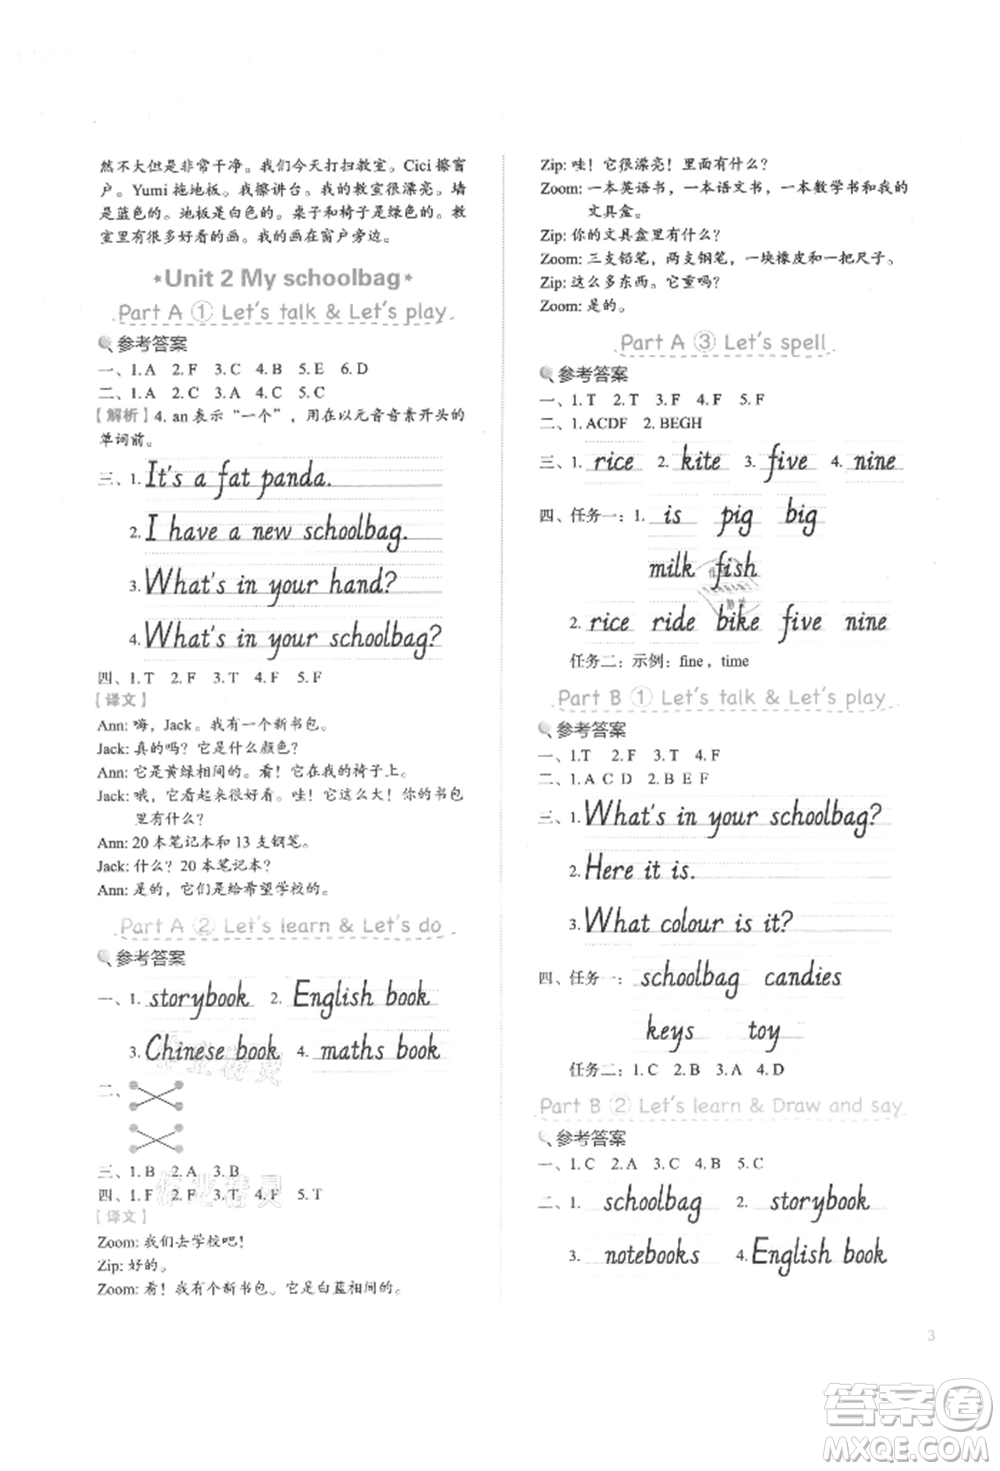 然不大但是非常干净。我们今天打扫教室。Cici 擦窗
户。Yumi 拖地板。我擦讲台。我的教室很漂亮。墙
是蓝色的。地板是白色的。桌子和椅子是绿色的。教
室里有很多好看的画。我的画在窗户旁边。
*Unit 2 My schoolbag*
Part A ① Let's talk & Let's play
参考答案
一、1.A 2.F 3.C 4.B 5.E 6.D
二、1.A 2.A 3.A 4.B
【解析】4. an 表示“一个”，用在以元音音素开头的
单词前。
三、1. It's a fat panda.
2. I have a new schoolbag.
3. What's in your hand?
4. What's in your schoolbag?
四、1.T 2.F 3.T 4.F 5.F
【译文】
Ann: 嗨，Jack。我有一个新书包。
Jack: 真的吗？它是什么颜色？
Ann: 它是黄绿相间的。看！它在我的椅子上。
Jack: 哦，它看起来很好看。哇！它这么大！你的书包
里有什么？
Ann: 20 本笔记本和 13 支钢笔。
Jack: 什么？20 本笔记本？
Ann: 是的，它们是给希望学校的。
Part A ② Let's learn & Let's do
参考答案
一、1. storybook 2. English book
3. Chinese book 4. maths book
二、
三、1.B 2.A 3.B
四、1.F 2.F 3.T 4.F 5.T
【译文】
Zoom: 我们去学校吧！
Zip: 好的。
Zoom: 看！我有个新书包。它是白蓝相间的。
Zip: 哇！它很漂亮！里面有什么？
Zoom: 一本英语书，一本语文书，一本数学书和我的
文具盒。
Zip: 你的文具盒里有什么？
Zoom: 三支铅笔，两支钢笔，一块橡皮和一把尺子。
Zip: 这么多东西。它们重吗？
Zoom: 是的。
Part A ③ Let's spell
参考答案
一、1.T 2.T 3.F 4.F 5.F
二、1.ACDF 2.BEGH
三、1. rice 2. kite 3. five 4. nine
四、任务一：1. is pig big
milk fish
2. rice ride bike five nine
任务二：示例：fine，time
Part B ① Let's talk & Let's play
参考答案
一、1.T 2.F 3.T 4.F
二、1.A C D 2.B E F
三、1. What's in your schoolbag?
2. Here it is.
3. What colour is it?
四、任务一： schoolbag candies
keys toy
任务二：1.C 2.B 3.A 4.D
Part B ② Let's learn & Draw and say
参考答案
一、1.C 2.A 3.B 4.B 5.C
二、1. schoolbag 2. storybook
3. notebooks 4. English book
3
答案圈
MXQE.COM
作业精灵